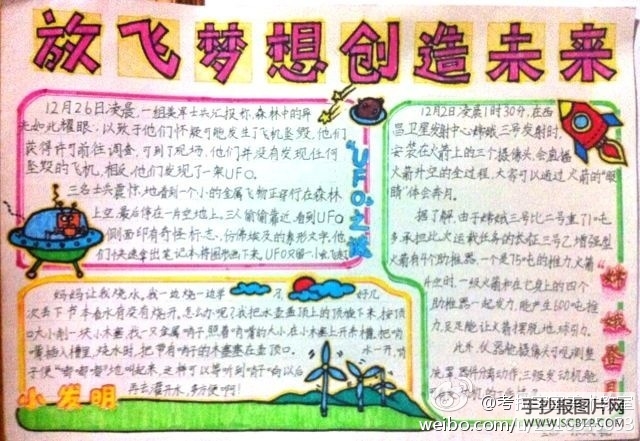 放飞梦想创造未来
12月26日凌晨,一组美军士兵汇报称,森林中的异
光如此耀眼,以致于他们怀疑可能发生了飞机坠毁,他们
获得许可前往调查,可到了现场,他们并没有发现任何
坠毁的飞机,相反,他们发现了一架UFO。
三名士兵震惊地看到一个小的金属飞物正穿行在森林
上空,最后停在一片空地上。三人偷偷靠近,看到UFO
侧面印有奇怪标志,仿佛埃及的象形文字,他
们快速拿出笔记本将图形画下来。UFO只留一小
"UFO"之
妈妈让我烧水。我一边烧一边羊 好几
次丢下书本看水有没有烧开。怎么办呢?我把水壶盖顶上的顶旋下来,按顶
口大小削一块小木塞,找一只金属哨子,照着哨嘴的大小在小木塞上开条槽,把哨
嘴插入槽里,烧水时,把带有哨子的木塞塞在壶顶口。 水一开,哨
子便"嘟嘟嘟"地叫起来,这样可以等听到哨子 向以后
再去灌开水,多方便啊!
小发明
12月2日凌晨1时30分,在西
昌卫星发射中心嫦娥三号发射时,
安装在火箭上的三个摄像头,会直播
火箭升空的全过程,大家可以通过火箭的"眼
睛"体会奔月。
据了解,由于嫦娥三号比二号重了1吨
多,承担此次运载任务的长征三号乙增强型
火箭有4个助推器,一个是75吨的推力,火箭
升空时,一级火箭中在它身上的四个
助推器一起发力,能产生600吨推
力,足足能让火箭摆脱地球引力。
此外,仪器舱摄像头可观测整
流罩 器件分离动作,三级发动机舱
嫦娥登月
weibo.com/
手抄报图片网
WWW.SCBTP.COM